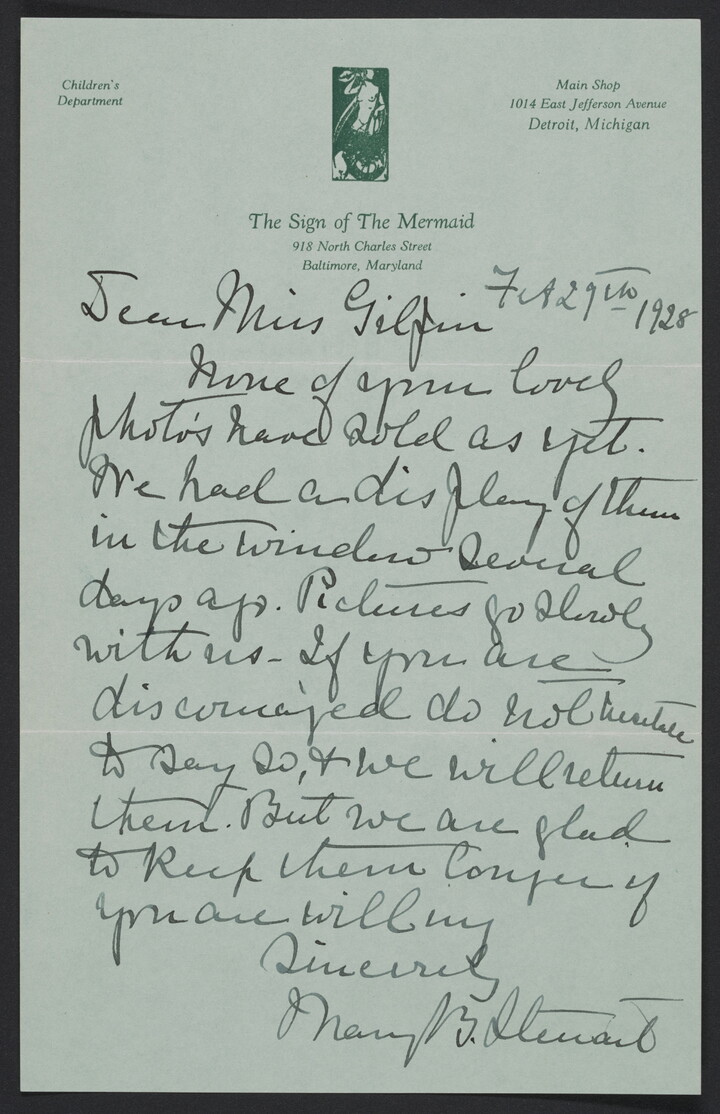 Children's
Department
Main Shop
1014 East Jefferson Avenue
Detroit, Michigan
The Sign of The Mermaid
918 North Charles Street
Baltimore, Maryland
Feb 29th 1928
Dear Miss Gilpin
None of your lovely
photo's have sold as yet.
We had a display of them
in the window several
days ago. Pictures go slowly
with us - If you are
discouraged do not hesitate
to say so, & we will return
them. But we are glad
to keep them longer if
you are willing
Sincerely
Mary B. Stewart